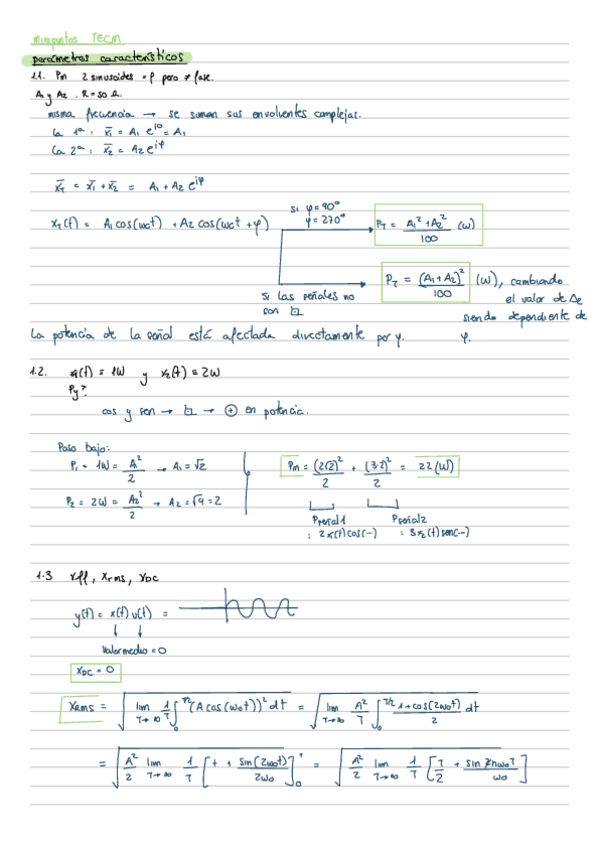 minipuntos TECM
parámetros característicos
1.1. Pm 2 sinusoides = f pero ≠ fase.
A₁ y A₂. R = 50 Ω.
misma frecuencia → se suman sus envolventes complejas.
La 1ª: x̄₁ = A₁ e^{j0} = A₁
La 2ª: x̄₂ = A₂ e^{jφ}
x̄_T = x̄₁ + x̄₂ = A₁ + A₂ e^{jφ}
x_T(t) = A₁ cos(ω₀t) + A₂ cos(ω₀t + φ)
Si φ = 90°
φ = 270°
P_T = (A₁² + A₂²)/100 (W)
Si las señales no
son
P_T = (A₁ + A₂)²/100 (W), cambiando
el valor de A₂
siendo dependiente de
φ.
La potencia de la señal está afectada directamente por φ.
1.2. x₁(t) = 1W y x₂(t) = 2W
Py?
cos y sen → → ⊕ en potencia.
Paso bajo:
P₁ = 1W = A₁²/2 → A₁ = √2
P₂ = 2W = A₂²/2 → A₂ = √4 = 2
Pm = (2√2)²/2 + (3·2)²/2 = 22 (W)
Pseñal1 Pseñal2
: 2x₁(t)cos(-) : 3x₂(t)sen(--)
1.3 xff, x_rms, x_DC
y(t) = x(t) u(t) =
↓ ↓
Valor medio = 0
x_DC = 0
x_RMS = √( lim T→∞ 1/T ∫₀^{T/2} (A cos(ω₀t))² dt = √( lim T→∞ A²/T ∫₀^{T/2} (1 + cos(2ω₀t))/2 dt
= √( A²/2 lim T→∞ 1/T [t + sin(2ω₀t)/2ω₀]₀ = √( A²/2 lim T→∞ 1/T [T/2 + sin /ω₀]